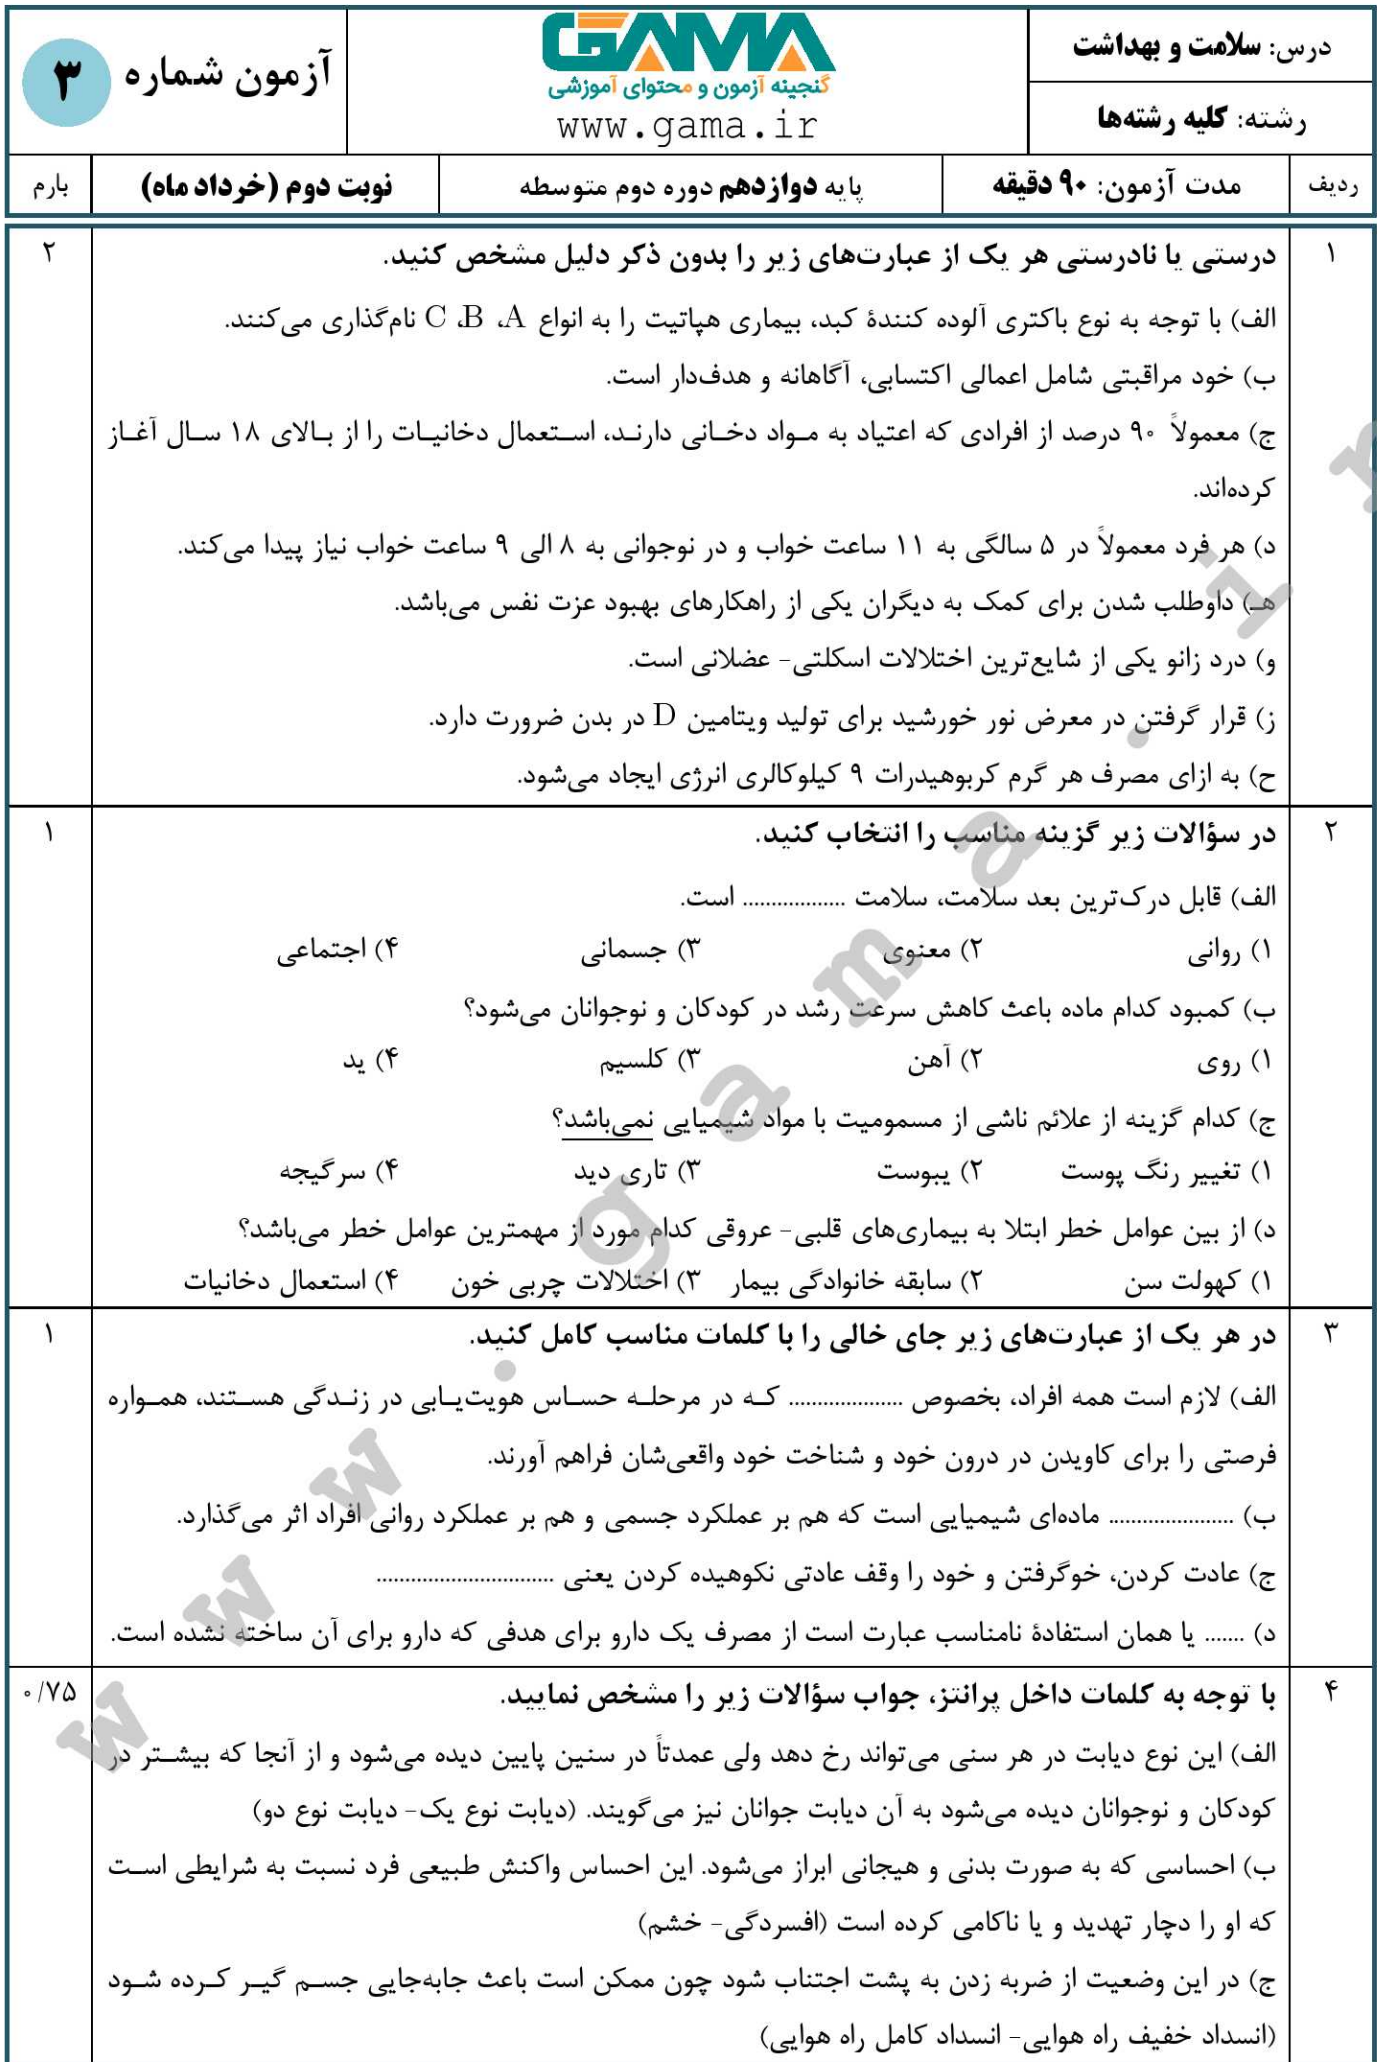 درس: سلامت و بهداشت
رشته: کلیه رشته‌ها
GAMA
گنجینه آزمون و محتوای آموزشی
www.gama.ir
آزمون شماره ۳
ردیف
مدت آزمون: ۹۰ دقیقه
پایه دوازدهم دوره دوم متوسطه
نوبت دوم (خرداد ماه)
بارم
۱
درستی یا نادرستی هر یک از عبارت‌های زیر را بدون ذکر دلیل مشخص کنید.
۲
الف) با توجه به نوع باکتری آلوده کنندهٔ کبد، بیماری هپاتیت را به انواع A، B، C نام‌گذاری می‌کنند.
ب) خود مراقبتی شامل اعمالی اکتسابی، آگاهانه و هدف‌دار است.
ج) معمولاً ۹۰ درصد از افرادی که اعتیاد به مواد دخانی دارند، استعمال دخانیات را از بالای ۱۸ سال آغاز
کرده‌اند.
د) هر فرد معمولاً در ۵ سالگی به ۱۱ ساعت خواب و در نوجوانی به ۸ الی ۹ ساعت خواب نیاز پیدا می‌کند.
هـ) داوطلب شدن برای کمک به دیگران یکی از راهکارهای بهبود عزت نفس می‌باشد.
و) درد زانو یکی از شایع‌ترین اختلالات اسکلتی- عضلانی است.
ز) قرار گرفتن در معرض نور خورشید برای تولید ویتامین D در بدن ضرورت دارد.
ح) به ازای مصرف هر گرم کربوهیدرات ۹ کیلوکالری انرژی ایجاد می‌شود.
۲
در سؤالات زیر گزینه مناسب را انتخاب کنید.
۱
الف) قابل درک‌ترین بعد سلامت، سلامت .................. است.
۱) روانی ۲) معنوی ۳) جسمانی ۴) اجتماعی
ب) کمبود کدام ماده باعث کاهش سرعت رشد در کودکان و نوجوانان می‌شود؟
۱) روی ۲) آهن ۳) کلسیم ۴) ید
ج) کدام گزینه از علائم ناشی از مسمومیت با مواد شیمیایی نمی‌باشد؟
۱) تغییر رنگ پوست ۲) یبوست ۳) تاری دید ۴) سرگیجه
د) از بین عوامل خطر ابتلا به بیماری‌های قلبی- عروقی کدام مورد از مهمترین عوامل خطر می‌باشد؟
۱) کهولت سن ۲) سابقه خانوادگی بیمار ۳) اختلالات چربی خون ۴) استعمال دخانیات
۳
در هر یک از عبارت‌های زیر جای خالی را با کلمات مناسب کامل کنید.
۱
الف) لازم است همه افراد، بخصوص .................... که در مرحله حساس هویت‌یابی در زندگی هستند، همواره
فرصتی را برای کاویدن در درون خود و شناخت خود واقعی‌شان فراهم آورند.
ب) ...................... ماده‌ای شیمیایی است که هم بر عملکرد جسمی و هم بر عملکرد روانی افراد اثر می‌گذارد.
ج) عادت کردن، خوگرفتن و خود را وقف عادتی نکوهیده کردن یعنی ...............................
د) ....... یا همان استفادهٔ نامناسب عبارت است از مصرف یک دارو برای هدفی که دارو برای آن ساخته نشده است.
۴
با توجه به کلمات داخل پرانتز، جواب سؤالات زیر را مشخص نمایید.
۰/۷۵
الف) این نوع دیابت در هر سنی می‌تواند رخ دهد ولی عمدتاً در سنین پایین دیده می‌شود و از آنجا که بیشتر در
کودکان و نوجوانان دیده می‌شود به آن دیابت جوانان نیز می‌گویند. (دیابت نوع یک- دیابت نوع دو)
ب) احساسی که به صورت بدنی و هیجانی ابراز می‌شود. این احساس واکنش طبیعی فرد نسبت به شرایطی است
که او را دچار تهدید و یا ناکامی کرده است (افسردگی- خشم)
ج) در این وضعیت از ضربه زدن به پشت اجتناب شود چون ممکن است باعث جابه‌جایی جسم گیر کرده شود
(انسداد خفیف راه هوایی- انسداد کامل راه هوایی)
www.gama.ir